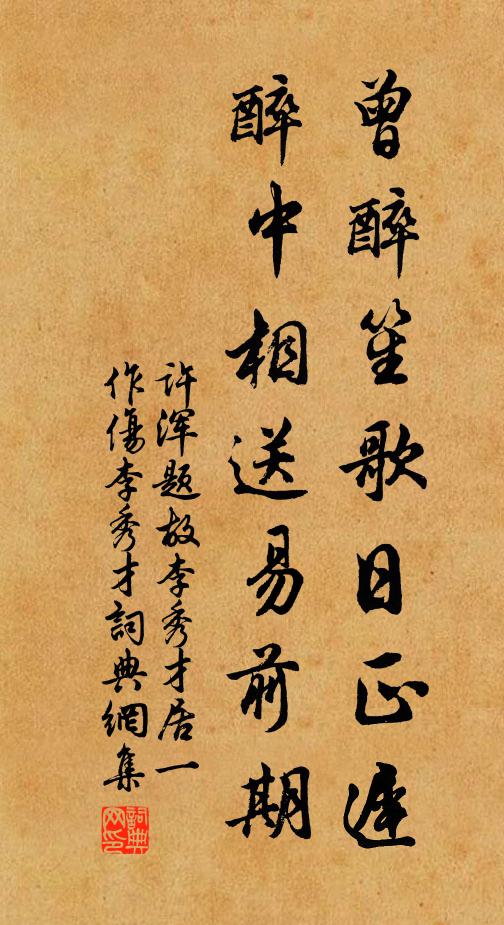 曾醉笙歌日正遲
醉中相送易前期
许浑题故李秀才居一
作傷李秀才詞典網集
詞典
网印